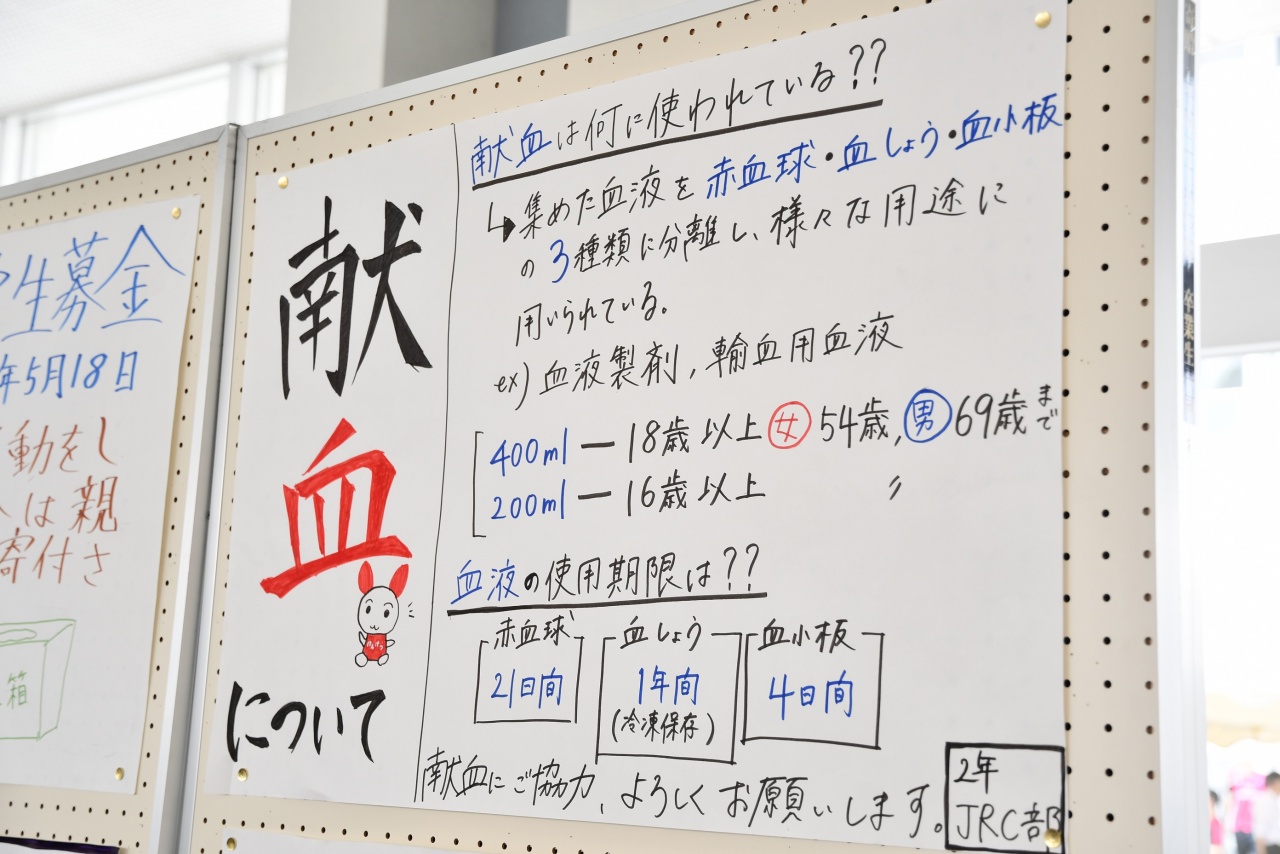 生募金
年5月18日
動をし
は親
寄付さ
箱
献
血
けんけつ
について
献血は何に使われている??
↳集めた血液を赤血球・血しょう・血小板
の3種類に分離し、様々な用途に
用いられている。
ex) 血液製剤, 輸血用血液
400ml ー 18歳以上 女 54歳, 男 69歳まで
200ml ー 16歳以上 〃
血液の使用期限は??
赤血球 血しょう 血小板
21日間 1年間 4日間
(冷凍保存)
献血にご協力、よろしくお願いします。
2年
JRC部
卒業生